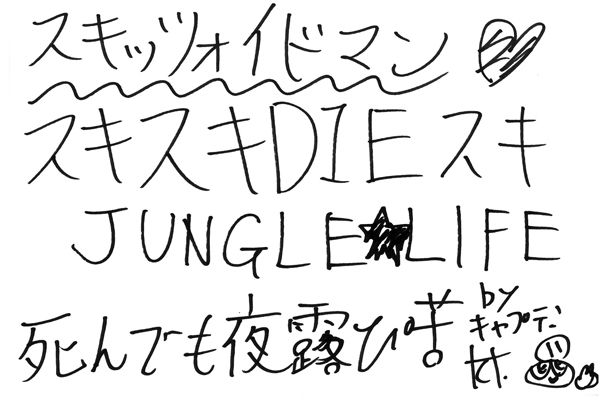 スキッツォイドマン
スキスキDIEスキ
JUNGLE★LIFE
死んでも夜露ひ苦
by
キャプテン